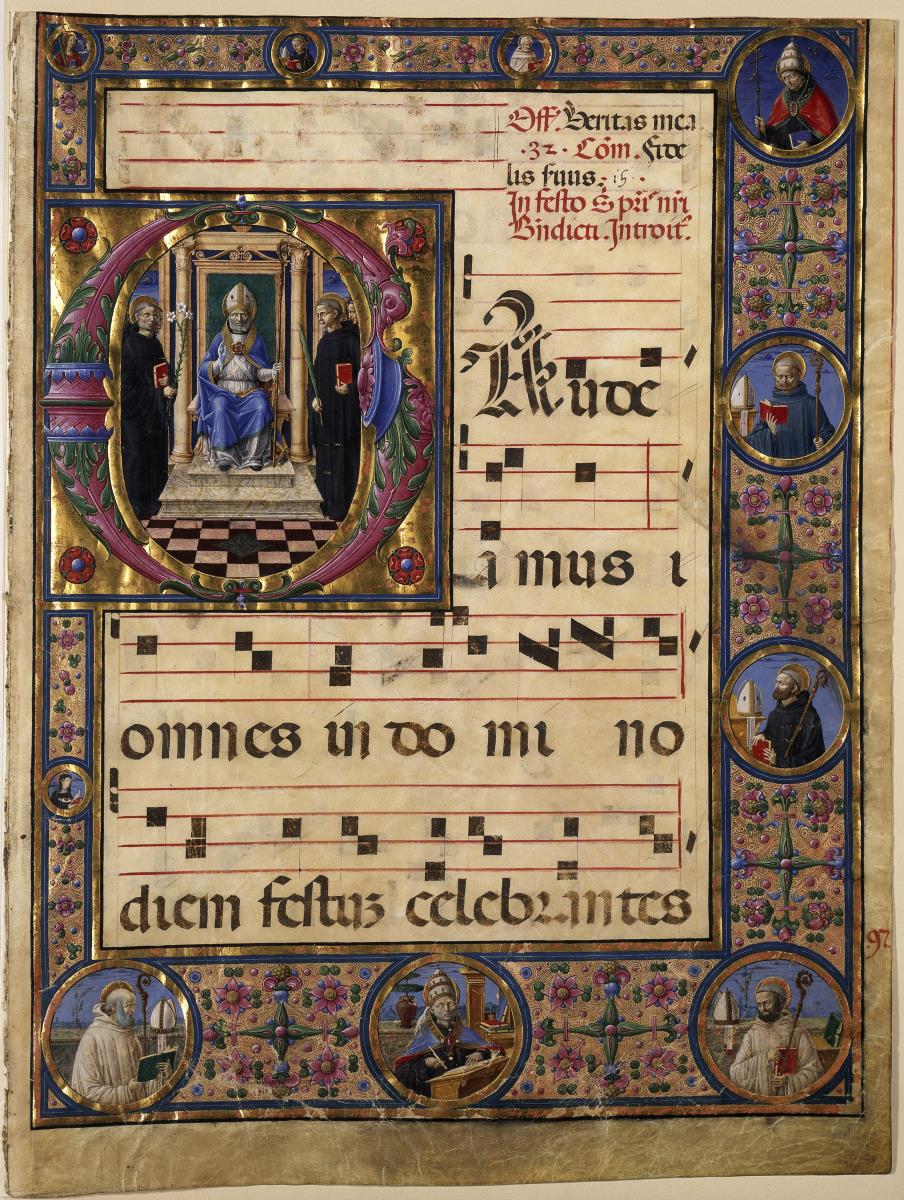 Off. Veritas mea
·32· Cōm. Fide
lis suus:
In festo S pr̄i nr̄i
Bn̄dicti. Introit.
Aude
amus i
omnes in do mi no
diem festuz celebrantes
97